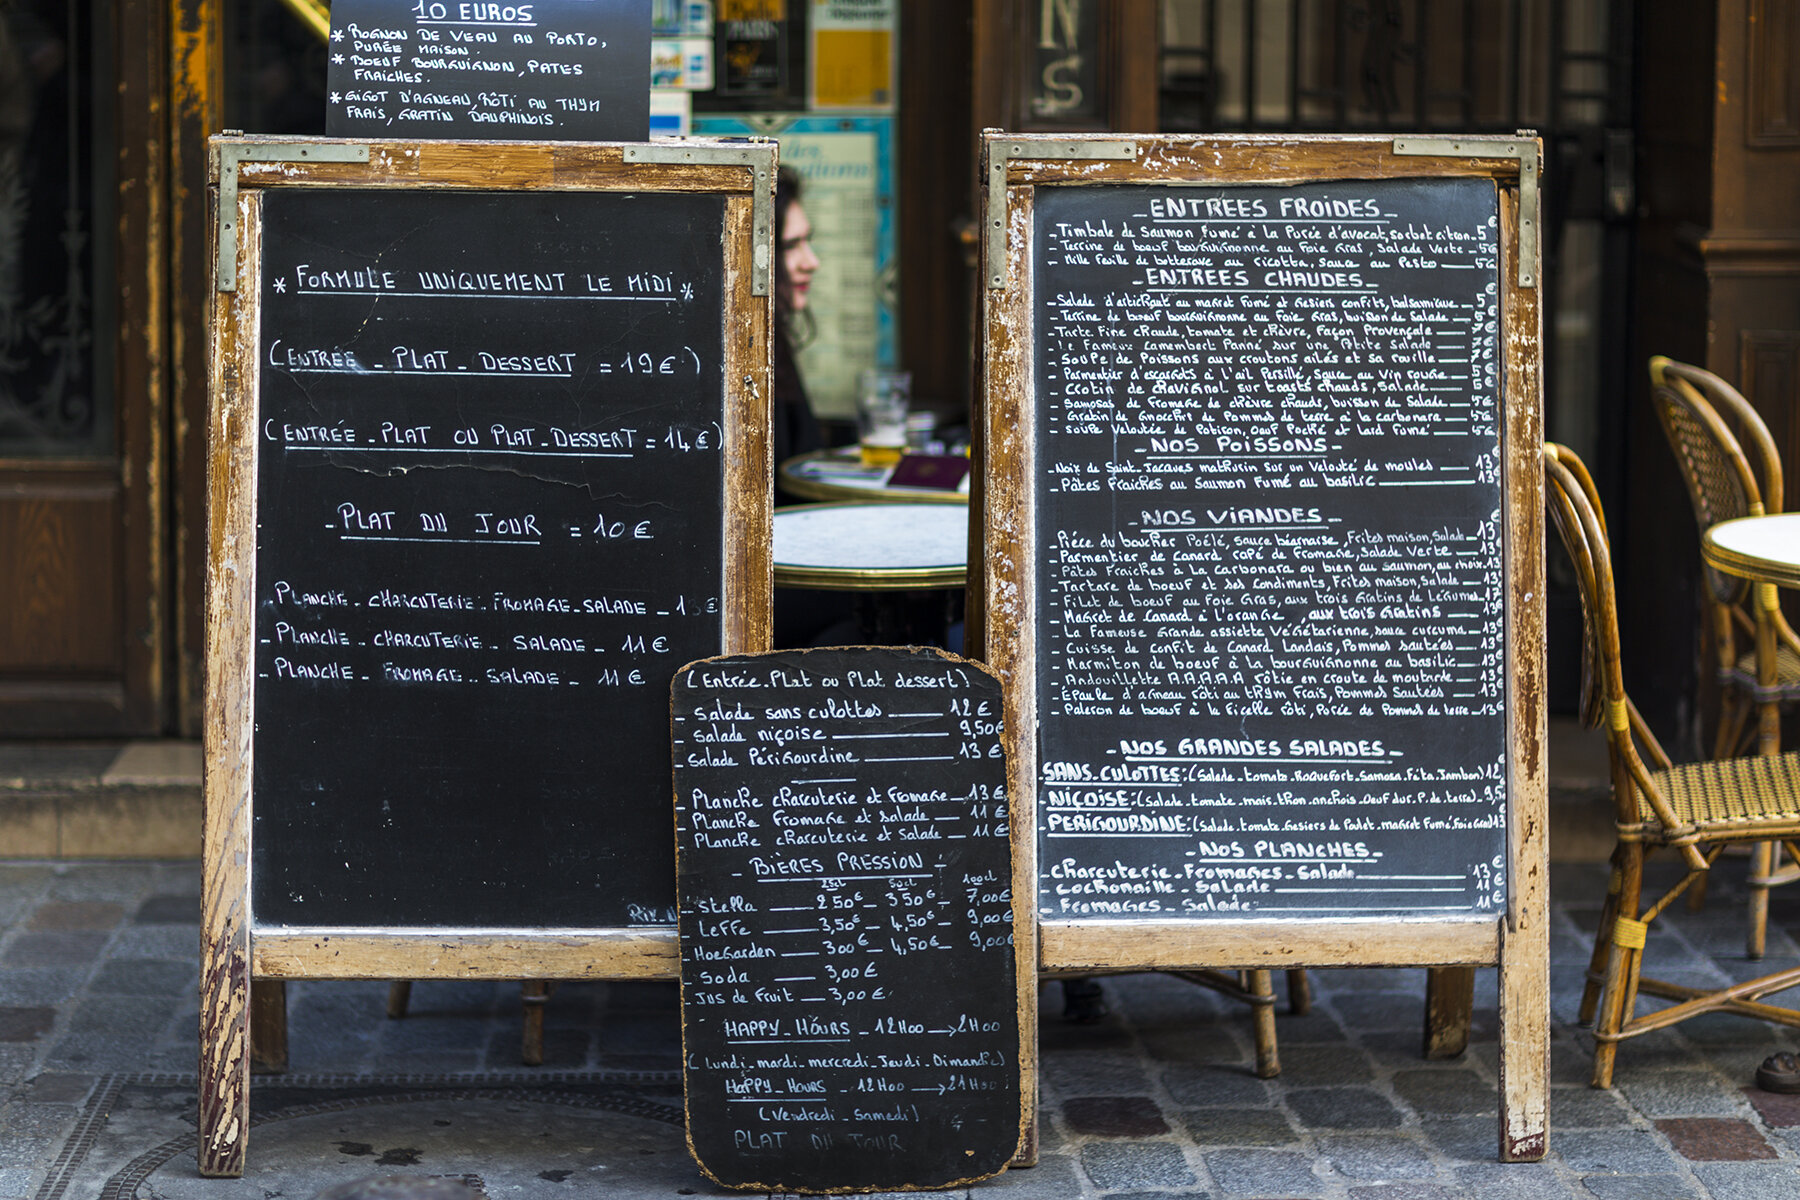 10 EUROS
* ROGNON DE VEAU AU PORTO,
PURÉE MAISON.
* BOEUF BOURGUIGNON, PATES
FRAICHES.
* GIGOT D'AGNEAU, RÔTI AU THYM
FRAIS, GRATIN DAUPHINOIS.
* FORMULE UNIQUEMENT LE MIDI *
(ENTRÉE - PLAT - DESSERT = 19 €)
(ENTRÉE - PLAT OU PLAT - DESSERT = 14 €)
- PLAT DU JOUR = 10 €
- PLANCHE - CHARCUTERIE - FROMAGE - SALADE - 13 €
- PLANCHE - CHARCUTERIE - SALADE - 11 €
- PLANCHE - FROMAGE - SALADE - 11 €
(Entrée - Plat ou Plat dessert)
- Salade sans culottes — 12 €
- Salade niçoise — 9,50€
- Salade Périgourdine — 13 €
- Planche charcuterie et fromage — 13 €
- Planche fromage et salade — 11 €
- Planche charcuterie et salade — 11 €
- BIÈRES PRESSION :
25cl 50cl 100cl
- Stella — 2 50€ — 3 50€ — 7,00€
- Leffe — 3,50€ — 4,50€ — 9,00€
- Hoegarden — 3 00€ — 4,50€ — 9,00€
- Soda — 3,00€
- Jus de fruit — 3,00€
HAPPY - HOURS - 12H00 → 2H00
(Lundi - mardi - mercredi - Jeudi - Dimanche)
HAPPY - HOURS - 12H00 → 21H00
(Vendredi - Samedi)
PLAT DU JOUR
- ENTREES FROIDES -
- Timbale de Saumon fumé à la Purée d'avocat, sorbet citron - 5€
- Terrine de boeuf bourguignonne au Foie Gras, Salade verte - 5€
- Mille feuille de betterave au ricotta, sauce au Pesto — 5€
- ENTREES CHAUDES -
- Salade d'artichaut au magret fumé et Gesiers confits, balsamique - 5€
- Terrine de boeuf bourguignonne au Foie Gras, buisson de Salade - 5€
- Tarte Fine chaude, tomate et chèvre, Façon Provençale — 7€
- Le Fameux Camembert Panné sur une Petite Salade — 7€
- Soupe de Poissons aux croutons ailés et sa rouille — 7€
- Parmentier d'escargots à l'ail Persillé, Sauce au Vin rouge — 5€
- Crotin de chavignol sur toasts chauds, Salade — 5€
- Samosas de Fromage de chèvre chauds, buisson de Salade - 5€
- Gratin de Gnocchi de Pommes de terre à la carbonara — 5€
- Soupe Veloutée de Potiron, Oeuf Poché et Lard Fumé — 5€
- NOS POISSONS -
- Noix de Saint-Jacques mathurin sur un Velouté de moules — 13€
- Pâtes Fraiches au Saumon Fumé au basilic — 13€
- NOS VIANDES -
- Pièce du boucher Poêlé, sauce béarnaise, Frites maison, Salade - 13€
- Parmentier de Canard rapé de Fromage, Salade Verte - 13€
- Pâtes Fraiches à la Carbonara ou bien au saumon, au choix - 13€
- Tartare de boeuf et ses condiments, Frites maison, Salade - 13€
- Filet de boeuf au Foie Gras, aux trois Gratins de Légumes - 17€
- Magret de Canard à l'orange, aux trois Gratins — 13€
- La Fameuse Grande assiette Végétarienne, sauce curcuma - 13€
- Cuisse de confit de Canard Landais, Pommes sautées — 13€
- Marmiton de boeuf à la bourguignonne au basilic — 13€
- Andouillette A.A.A.A.A rôtie en croute de moutarde — 13€
- Épaule d'agneau rôti au thym Frais, Pommes Sautées — 13€
- Paleron de boeuf à la Ficelle rôti, Purée de Pommes de terre - 13€
- NOS GRANDES SALADES -
- SANS-CULOTTES: (Salade - tomate - Roquefort, Samosa, Féta, Jambon) 12€
- NIÇOISE: (Salade - tomate - mais - thon - anchois - Oeuf dur, P. de terre) - 9,5€
- PERIGOURDINE: (Salade - tomate - Gesiers de Poulet - magret Fumé, Foie Gras) 13
- NOS PLANCHES -
- Charcuterie - Fromages - Salade — 13€
- Cochonaille - Salade — 11€
- Fromages - Salade — 11€